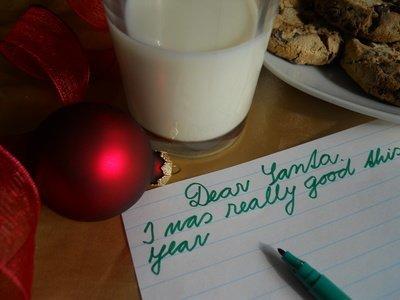 Dear Santa,
I was really good this
year